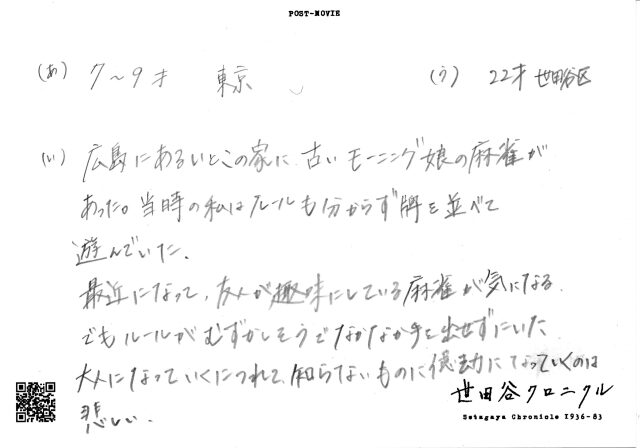 POST-MOVIE
(あ) 7〜9才 東京 (う) 22才 世田谷区
(い) 広島にあるいとこの家に、古いモーニング娘の麻雀が
あった。当時の私はルールも分からず牌を並べて
遊んでいた。
最近になって、友人が趣味にしている麻雀が気になる。
でもルールがむずかしそうでなかなか手を出せずにいた
大人になっていくにつれて、知らないものに億劫になっていくのは
悲しい。
世田谷クロニクル
Setagaya Chronicle 1936-83